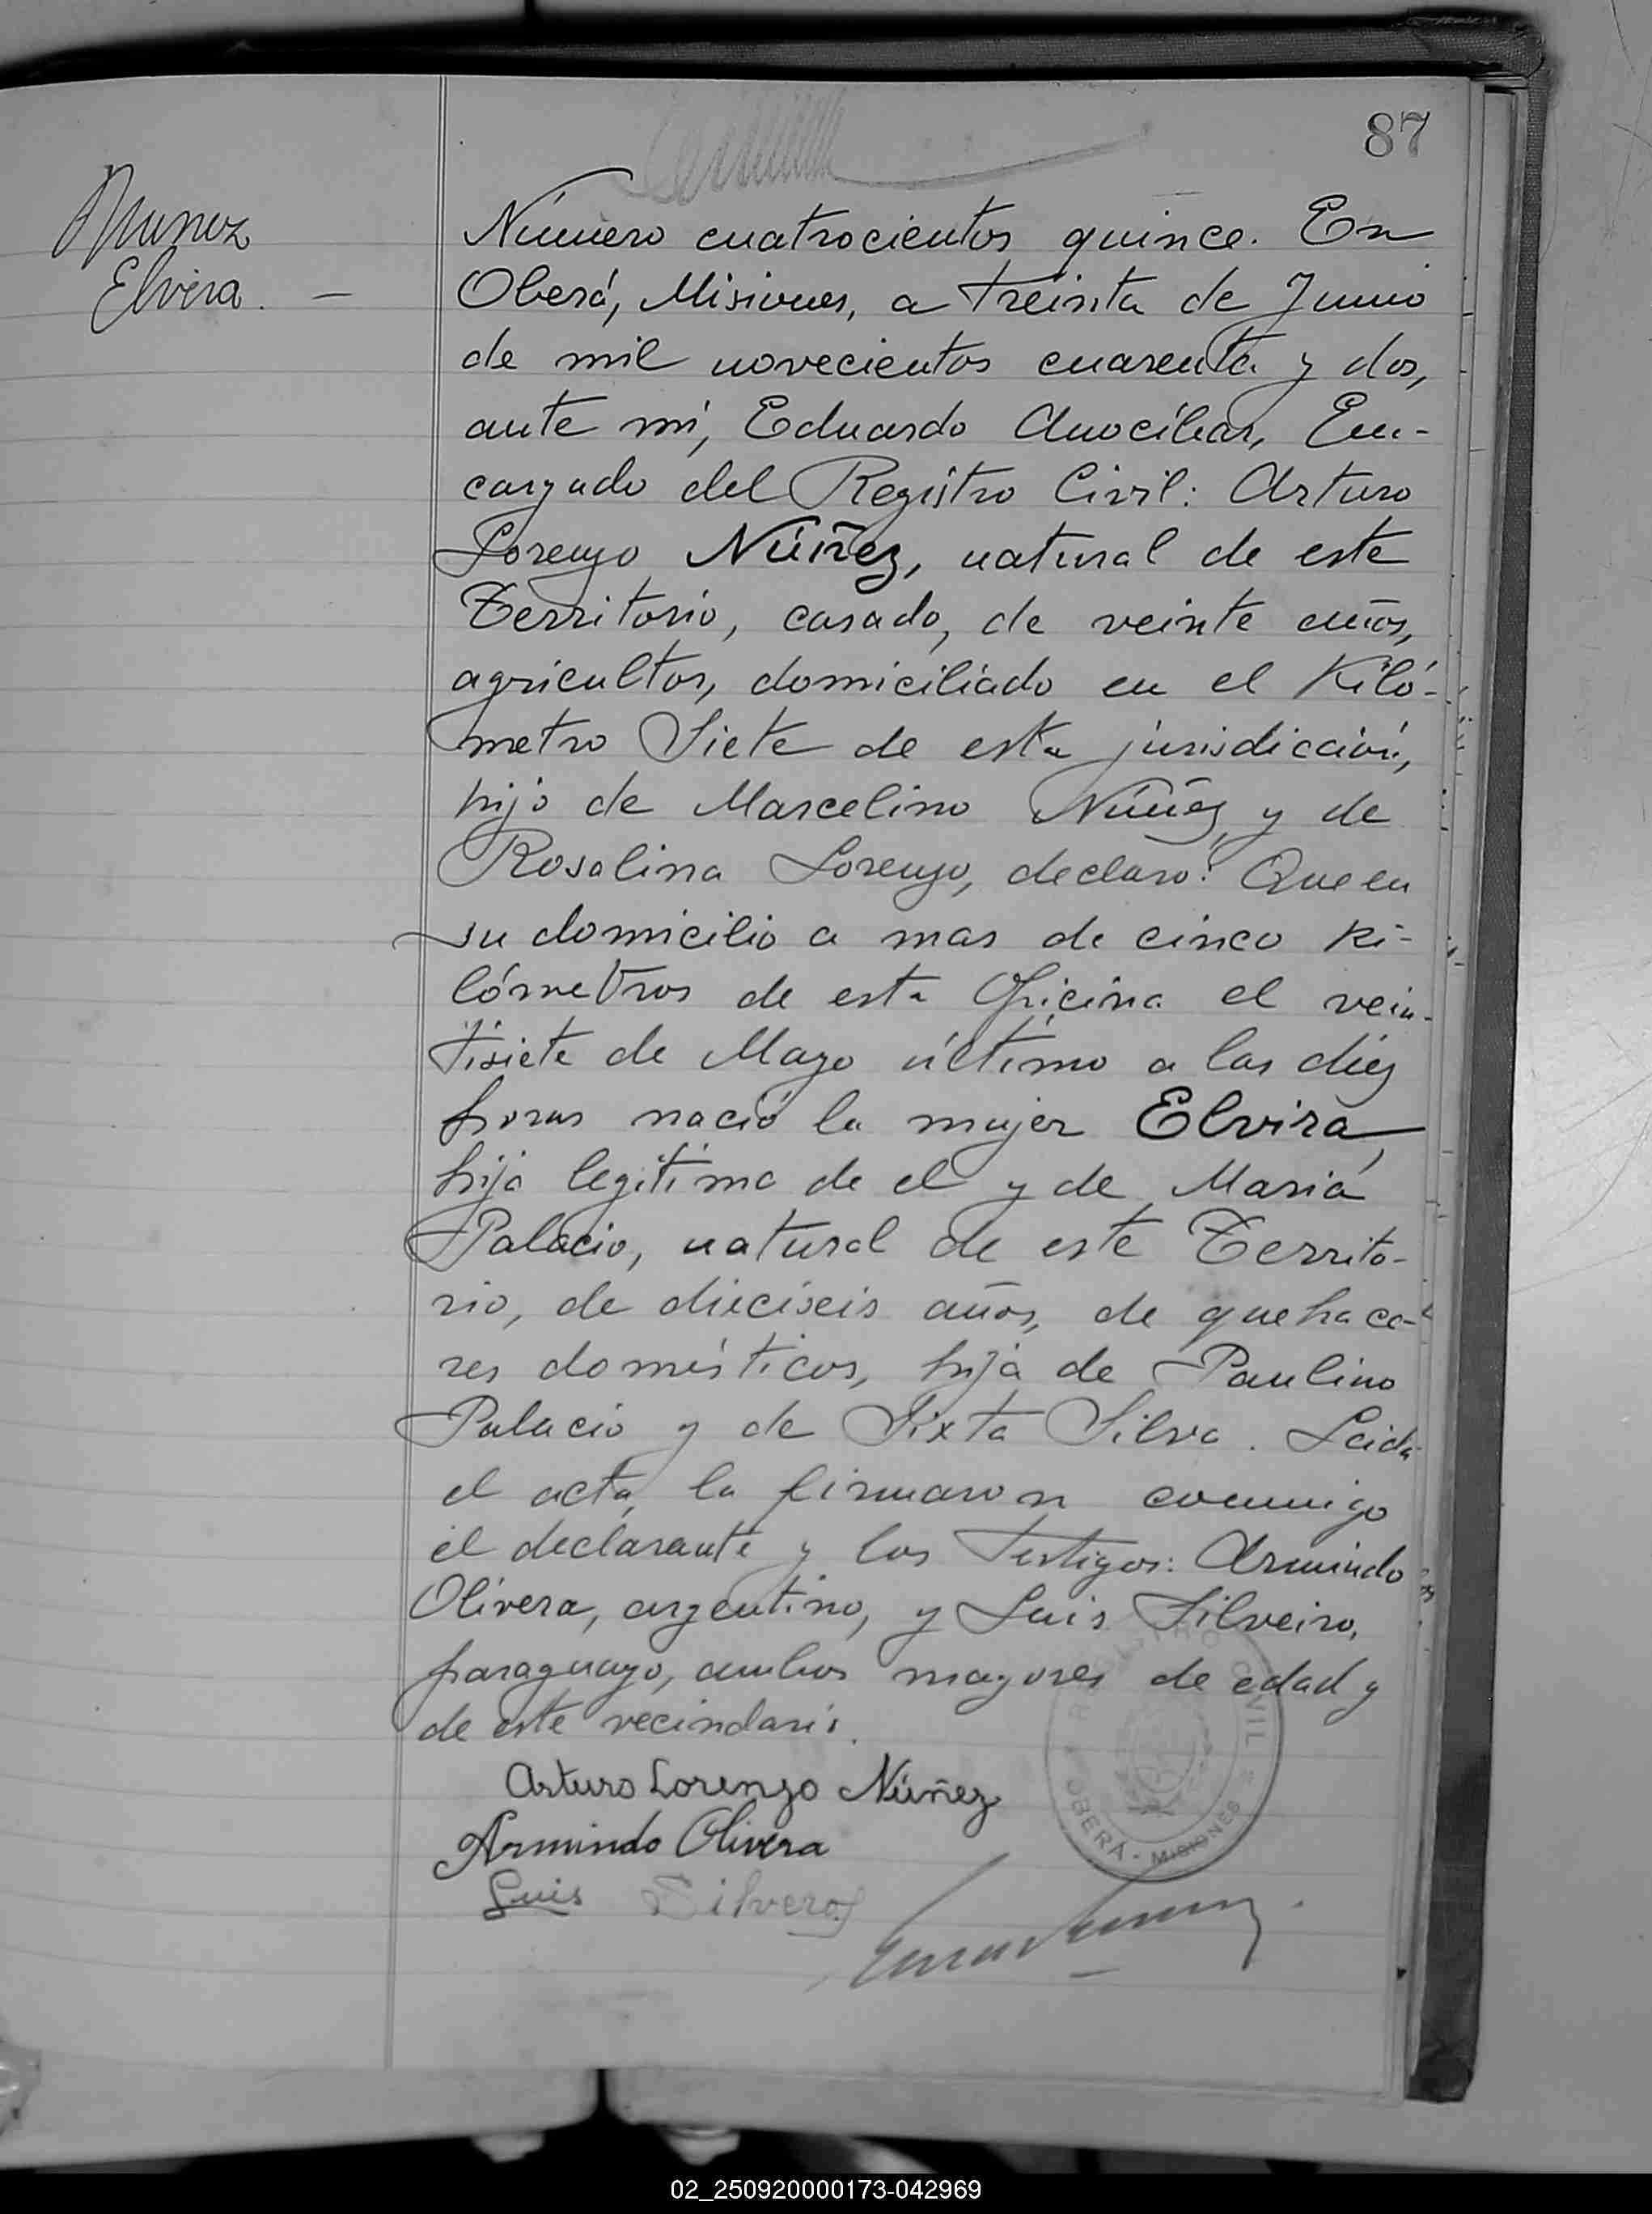 87
Munoz
Elvira. —
Número cuatrocientos quince. En
Oberá, Misiones, a treinta de Junio
de mil novecientos cuarenta y dos,
ante mí, Eduardo Anocíbar, En-
cargado del Registro Civil: Arturo
Lorenzo Núñez, natural de este
Territorio, casado, de veinte años,
agricultor, domiciliado en el Kiló-
metro Siete de esta jurisdicción,
hijo de Marcelino Núñez y de
Rosalina Lorenzo, declaro: Que en
su domicilio a mas de cinco ki-
lómetros de esta Oficina el vein-
tisiete de Mayo último a las diez
horas nació la mujer Elvira,
hija legítima de el y de María
Palacio, natural de este Territo-
rio, de dieciseis años, de quehace-
res domésticos, hija de Paulino
Palacio y de Sixta Silva. Leida
el acta, la firmaron conmigo
el declarante y los testigos: Armindo
Olivera, argentino, y Luis Silveiro,
paraguayo, ambos mayores de edad y
de este vecindario.
REGISTRO CIVIL
OBERÁ - MISIONES
Arturo Lorenzo Núñez
Armindo Olivera
Luis Silvero
02_250920000173-042969